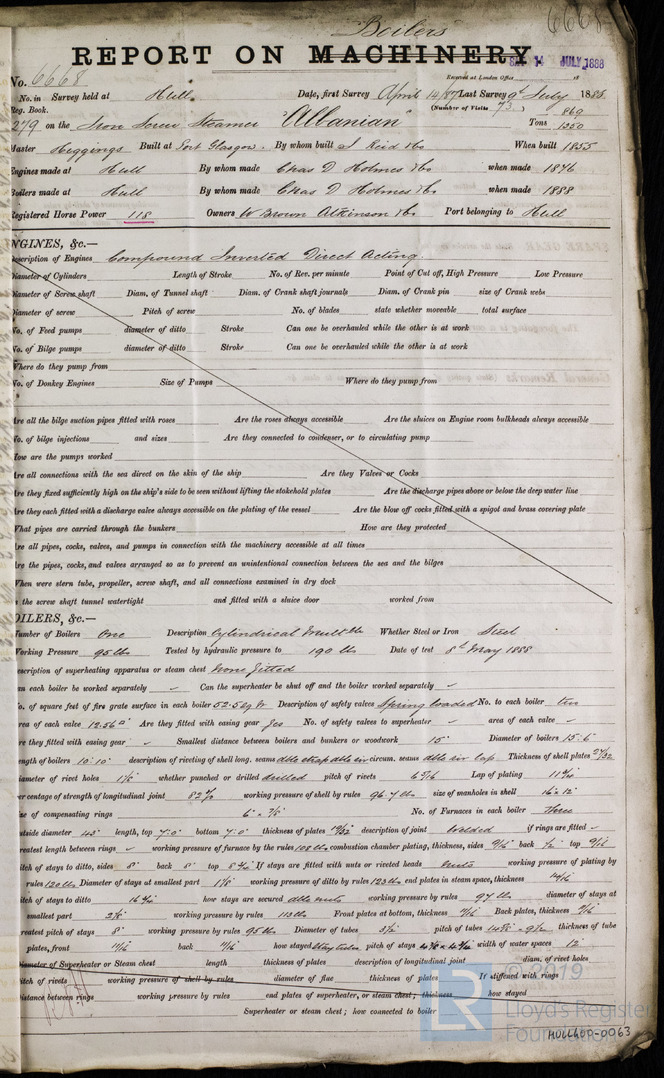 Boilers
6668
REPORT ON MACHINERY
SAT. 14 JULY 1888
No. 6668
Received at London Office 18
No. in Survey held at Hull. Date, first Survey April 14/87 Last Survey 9th July 1888
Reg. Book. (Number of Visits 73)
279 on the Iron Screw Steamer "Albanian" Tons 869 1350
Master Heggings Built at Port Glasgow. By whom built J Reid & Co When built 1855
Engines made at Hull By whom made Chas D Holmes & Co when made 1876
Boilers made at Hull By whom made Chas D Holmes & Co when made 1888
Registered Horse Power 118 Owners W Brown Atkinson & Co Port belonging to Hull
ENGINES, &c.—
Description of Engines Compound Inverted Direct Acting.
Diameter of Cylinders Length of Stroke No. of Rev. per minute Point of Cut off, High Pressure Low Pressure
Diameter of Screw shaft Diam. of Tunnel shaft Diam. of Crank shaft journals Diam. of Crank pin size of Crank webs
Diameter of screw Pitch of screw No. of blades state whether moveable total surface
No. of Feed pumps diameter of ditto Stroke Can one be overhauled while the other is at work
No. of Bilge pumps diameter of ditto Stroke Can one be overhauled while the other is at work
Where do they pump from
No. of Donkey Engines Size of Pumps Where do they pump from
Are all the bilge suction pipes fitted with roses Are the roses always accessible Are the sluices on Engine room bulkheads always accessible
No. of bilge injections and sizes Are they connected to condenser, or to circulating pump
How are the pumps worked
Are all connections with the sea direct on the skin of the ship Are they Valves or Cocks
Are they fixed sufficiently high on the ship's side to be seen without lifting the stokehold plates Are the discharge pipes above or below the deep water line
Are they each fitted with a discharge valve always accessible on the plating of the vessel Are the blow off cocks fitted with a spigot and brass covering plate
What pipes are carried through the bunkers How are they protected
Are all pipes, cocks, valves, and pumps in connection with the machinery accessible at all times
Are the pipes, cocks, and valves arranged so as to prevent an unintentional connection between the sea and the bilges
When were stern tube, propeller, screw shaft, and all connections examined in dry dock
Is the screw shaft tunnel watertight and fitted with a sluice door worked from
BOILERS, &c.—
Number of Boilers One Description Cylindrical Mult Whether Steel or Iron Steel
Working Pressure 95 lbs Tested by hydraulic pressure to 190 lbs Date of test 8th May 1888
Description of superheating apparatus or steam chest None fitted
Can each boiler be worked separately ✓ Can the superheater be shut off and the boiler worked separately ✓
No. of square feet of fire grate surface in each boiler 52.5 sq ft Description of safety valves Spring loaded No. to each boiler two
Area of each valve 12.56 □" Are they fitted with easing gear Yes No. of safety valves to superheater ✓ area of each valve ✓
Are they fitted with easing gear ✓ Smallest distance between boilers and bunkers or woodwork 15" Diameter of boilers 15'6"
Length of boilers 10'10" description of riveting of shell long. seams dble strap dble riv circum. seams dble riv lap Thickness of shell plates
Diameter of rivet holes whether punched or drilled drilled pitch of rivets Lap of plating
Percentage of strength of longitudinal joint 82 % working pressure of shell by rules 96.7 lbs size of manholes in shell 16 × 12"
Size of compensating rings 6" × 7/8" No. of Furnaces in each boiler Three
Outside diameter 43" length, top 7'0" bottom 7'0" thickness of plates description of joint Welded if rings are fitted ✓
Greatest length between rings ✓ working pressure of furnace by the rules combustion chamber plating, thickness, sides 9/16 back top 9/16
Pitch of stays to ditto, sides 8" back 8" top If stays are fitted with nuts or riveted heads nuts working pressure of plating by
rules 120 lbs Diameter of stays at smallest part working pressure of ditto by rules 123 lbs end plates in steam space, thickness
Pitch of stays to ditto how stays are secured dble nuts working pressure by rules 97 lbs diameter of stays at
smallest part working pressure by rules 113 lbs Front plates at bottom, thickness Back plates, thickness
Greatest pitch of stays 8" working pressure by rules 95 lbs Diameter of tubes pitch of tubes thickness of tube
plates, front back how stayed Stay tubes pitch of stays width of water spaces 12"
Diameter of Superheater or Steam chest length thickness of plates description of longitudinal joint diam. of rivet holes
Pitch of rivets working pressure of shell by rules diameter of flue thickness of plates If stiffened with rings
Distance between rings working pressure by rules end plates of superheater, or steam chest; thickness how stayed
Superheater or steam chest; how connected to boiler
© 2019
Lloyd's Register
Foundation
HULL60P-0063